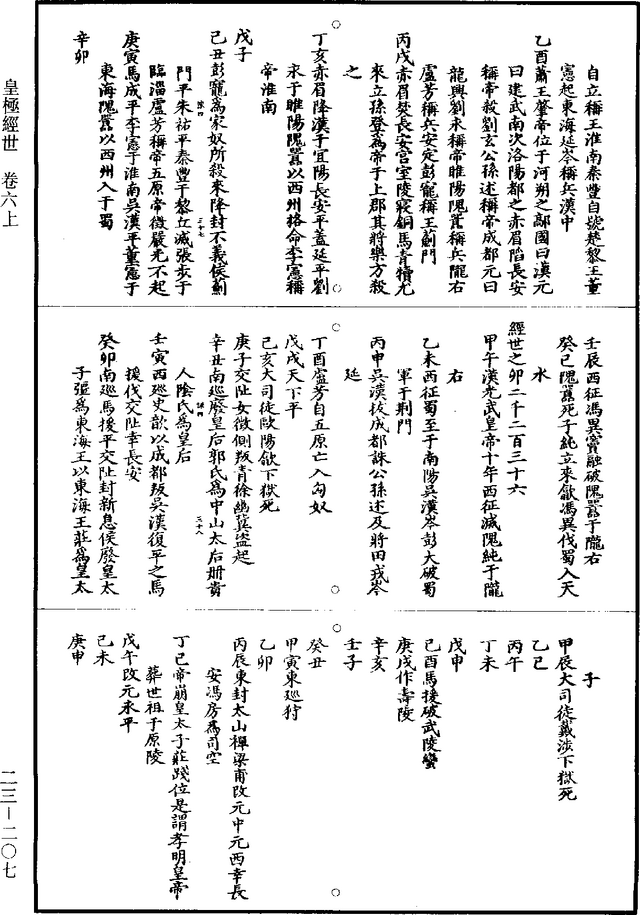 皇極經世　卷六上
自立稱王淮南秦豐自號楚黎王董
憲起東海延岑稱兵漢中
乙酉蕭王肇帝位于河朔之鄗國曰漢元
曰建武南次洛陽都之赤眉陷長安
稱帝殺劉玄公孫述稱帝成都元曰
龍興劉永稱帝睢陽隗囂稱兵隴右
盧芳稱兵安定彭寵稱王薊門
丙戌赤眉焚長安宫室陵寢銅馬青犢尤
來立孫登為帝于上郡其將樂方殺
之
丁亥赤眉降漢于宜陽長安平蓋延平劉
永于睢陽隗囂以西州格命李憲稱
帝淮南
戊子
己丑彭寵為家奴所殺來降封不義侯薊
門平朱祐平秦豐于黎丘滅張步于
臨淄盧芳稱帝五原帝徵嚴光不起
庚寅馬成平李憲于淮南吳漢平董憲于
東海隗囂以西州入于蜀
辛卯
壬辰西征馮異竇融破隗囂于隴右
癸巳隗囂死子純立來歙馮異伐蜀入天
水
經世之卯二千二百三十六
甲午漢光武皇帝十年西征滅隗純于隴
右
乙未西征蜀至于南陽吳漢岑彭大破蜀
軍于荆門
丙申吳漢拔成都誅公孫述及將田戎岑
延
丁酉盧芳自五原亡入匈奴
戊戌天下平
己亥大司徒歐陽歙下獄死
庚子交阯女徵側叛青徐幽冀盗起
辛丑南巡廢皇后郭氏為中山太后册貴
人陰氏為皇后
壬寅西巡史歆以成都叛吳漢復平之馬
援伐交阯幸長安
癸卯南巡馬援平交阯封新息侯廢皇太
子彊為東海王以東海王莊為皇太
子
甲辰大司徒戴涉下獄死
乙巳
丙午
丁未
戊申
己酉馬援破武陵蠻
庚戌作壽陵
辛亥
壬子
癸丑
甲寅東巡狩
乙卯
丙辰東封太山禪梁甫改元中元西幸長
安馮房為司空
丁巳帝崩皇太子莊踐位是謂孝明皇帝
葬世祖于原陵
戊午改元永平
己未
庚申
二三—二〇七